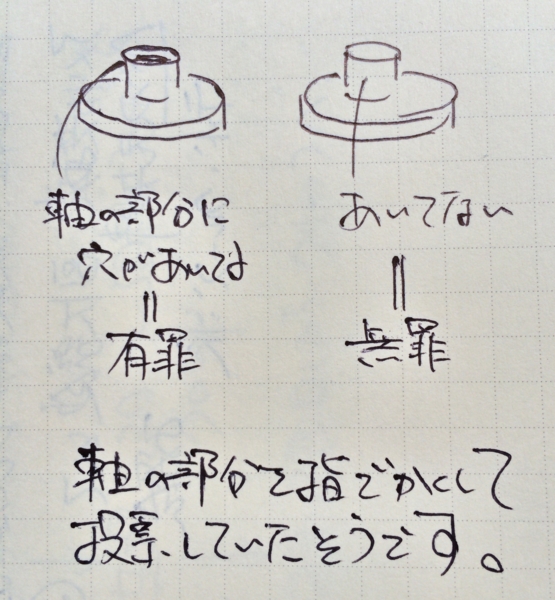 軸の部分に
穴があいてる
||
有罪
あいてない
||
無罪
軸の部分を指でかくして
投票していたそうです。